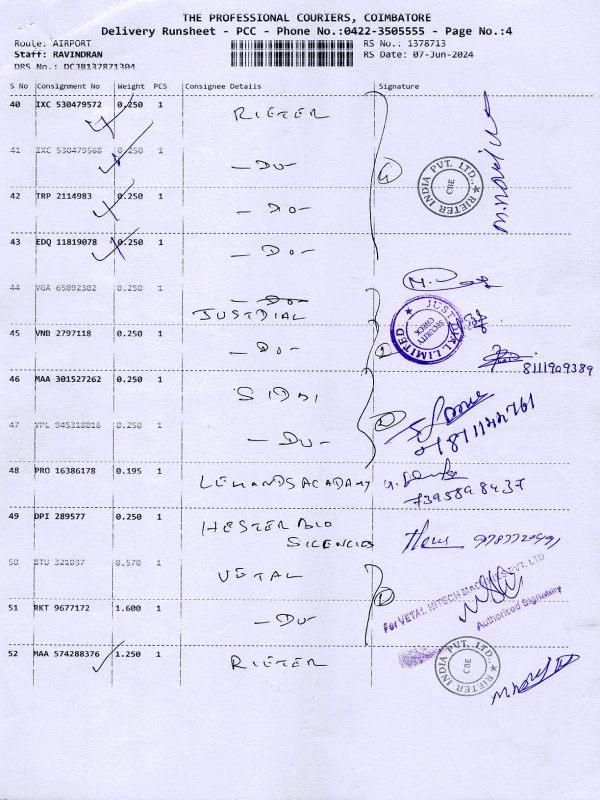 THE PROFESSIONAL COURIERS, COIMBATORE
Delivery Runsheet - PCC - Phone No.:0422-3505555 - Page No.:4
Route: AIRPORT RS No.: 1378713
Staff: RAVINDRAN RS Date: 07-Jun-2024
DRS No.: DCJB137871304
S No Consignment No Weight PCS Consignee Details Signature
40 IXC 530479572 0.250 1 RIETER
41 IXC 530479568 0.250 1 -Do-
42 TRP 2114983 0.250 1 -Do-
43 EDQ 11819078 0.250 1 -Do-
RIETER INDIA PVT. LTD., CBE
44 VGA 65092302 0.250 1 -Do-
JUSTDIAL
45 VNB 2797118 0.250 1 -Do-
JUSTDIAL LIMITED SECURITY CHECK
8111909389
46 MAA 301527262 0.250 1 SIDDI
47 VPL 945318016 0.250 1 -Do-
48 PRO 16386178 0.195 1 LEMANDSACADAMY
7395898437
49 DPI 289577 0.250 1 HESTER BIO
SICENCIES
50 STU 321037 0.570 1 VETAL
51 RKT 9677172 1.600 1 -Do-
For VETAL HITECH MACHINES PVT. LTD
Authorised Signatory
52 MAA 574288376 1.250 1 RIETER
RIETER INDIA PVT. LTD., CBE